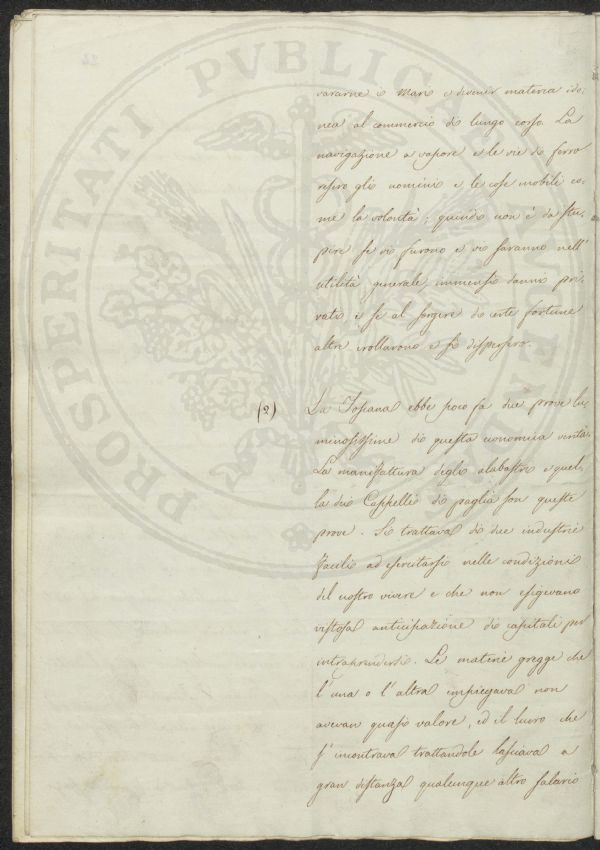 vararne i Mari e divenir materia ido,
nea al commercio di lungo corso. La
navigazione a vapore e le vie di ferro
resero gli uomini e le cose mobili co,
me la volontà; quindi non è da stu,
pire se vi furono e vi saranno nell'
utilità generale immensi danni pri,
vati e se al sorgere di certe fortune
altre crollarono e si dispersero.
(2) La Toscana ebbe poco fa due prove lu,
minosissime di questa economica verità.
La manifattura degli alabastri e quel,
la dei Cappelli di paglia son queste
prove. Si trattava di due industrie
facili ad esercitarsi nelle condizioni
del nostro vivere e che non esigevano
vistosa anticipazione di capitali per
intraprendersi. Le materie gregge che
l'una o l'altra impiegava non
avevan quasi valore, ed il lucro che
s'incontrava trattandole lasciava a
gran distanza qualunque altro salario
PROSPERITATI PVBLICAE AVGENDAE